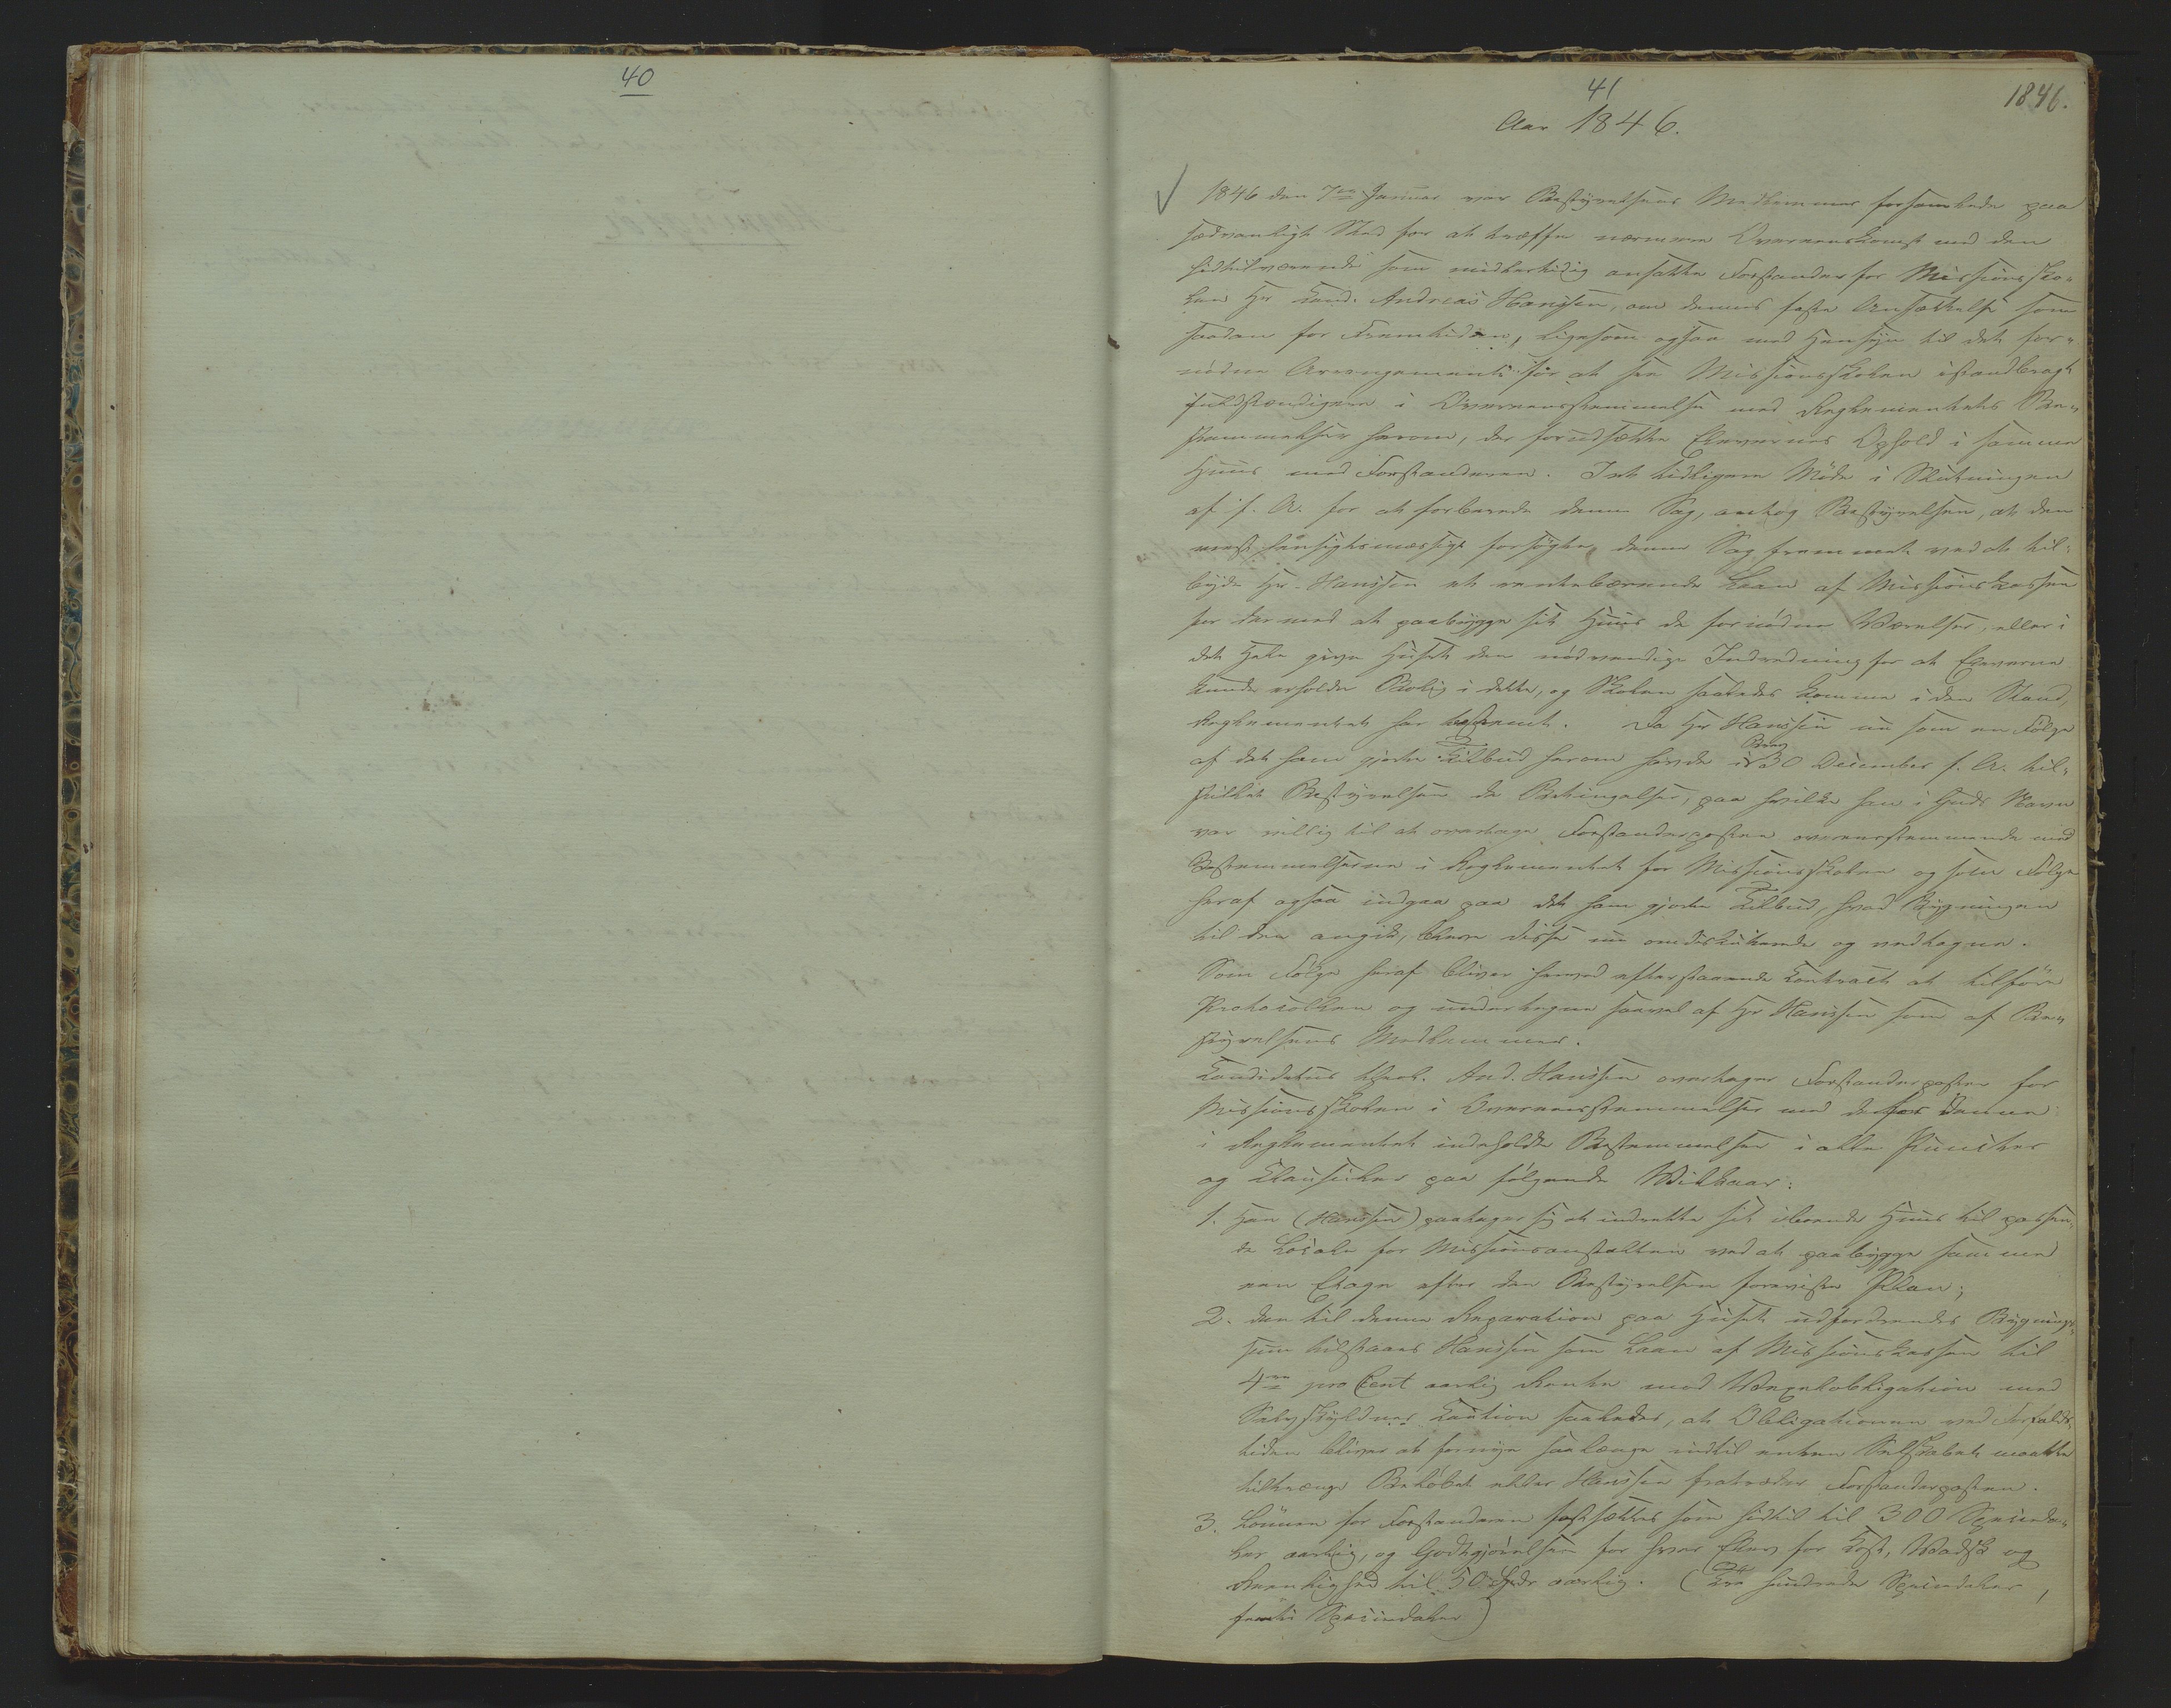 40
41
1846.
Aar 1846.
1846 den 7de Januar var Bestyrelsens Medlemmer forsamlede paa
sædvanligt Sted for at træffe nærmere Overeenskomst med den
hidtilværende som midlertidig ansatte Forstander for Missionssko-
len Hr Cand. Andreas Hanssen, om dennes faste Ansættelse som
saadan for Fremtiden, ligesom ogsaa med Hensyn til det for-
nødne Arrangement for at see Missionsskolen istandbragt
fuldstændigere i Overeensstemmelse med Reglementets Be-
stemmelser herom, der forudsætte Elevernes Ophold i samme
Huus med Forstanderen. I et tidligere Møde i Slutningen
af f. A. for at forberede denne Sag, antog Bestyrelsen, at den
meest hensigtsmæssigt forsøgte denne Sag fremmet ved at til-
byde Hr. Hanssen et rentebærende Laan af Missionskassen
for dermed at paabygge sit Huus de fornødne Værelser, eller i
det Hele give Huset den nødvendige Indredning for at Eleverne
kunde erholde Bolig i dette, og Skolen saaledes komme i den Stand,
Reglementet har bestemt. Da Hr Hanssen nu som en Følge
af det ham gjorte Tilbud herom havde i Brev 30 December f. A. til-
stillet Bestyrelsen de Betingelser, paa hvilke han i Guds Navn
var villig til at overtage Forstanderposten overeensstemmende med
Bestemmelserne i Reglementet for Missionsskolen og som Følge
heraf ogsaa indgaa paa det ham gjorte Tilbud, hvad Bygningen
til den angik, bleve disse nu omdiskuterede og vedtagne.
Som Følge heraf bliver herved efterstaaende Contract at tilføre
Protocollen og undertegne saavel af Hr Hanssen som af Be-
styrelsens Medlemmer.
Candidatus theol. And. Hanssen overtager Forstanderposten for
Missionsskolen i Overeensstemmelse med de for denne
i Reglementet indeholdte Bestemmelser i alle Puncter
og Clausuler paa følgende Vilkaar:
1. Han (Hanssen) paatager sig at indrette sit iboende Huus til passen-
de Locale for Missionsanstalten ved at paabygge samme
een Etage efter den Bestyrelsen foreviste Plan;
2. den til denne Reparation paa Huset udfordrendes Bygnings-
sum tilstaaes Hanssen som Laan af Missionskassen til
4re pro Cent aarlig Rente mod Vexelobligation med
Selvskyldner Caution saaledes, at Obligationen ved Forfalds-
tiden bliver at fornye saalænge indtil enten Selskabet maatte
tiltrænge Beløbet eller Hanssen fratræder Forstanderposten.
3. Lønnen for Forstanderen fastsættes som hidtil til 300 Speciedа-
ler aarlig, og Godtgjørelsen for hver Elev for Kost, Vadsk og
Reenlighed til 50 Spdr aarlig. (Tre hundrede Speciedaler,
femti Speciedaler)